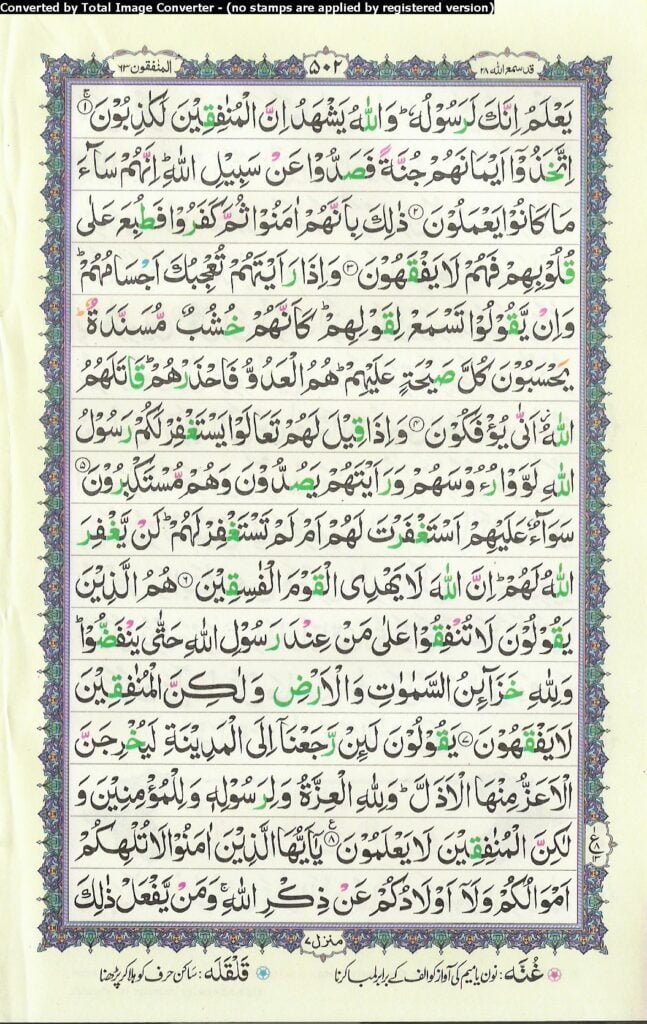 Converted by Total Image Converter - (no stamps are applied by registered version)
المنٰفقون ٦٣
٥٠٢
قد سمع الله ٢٨
يَعْلَمُ اِنَّكَ لَرَسُوْلُهٗ ؕ وَاللّٰهُ يَشْهَدُ اِنَّ الْمُنٰفِقِيْنَ لَكٰذِبُوْنَ ۚ‏ ﴿۱﴾
اِتَّخَذُوْۤا اَيْمَانَهُمْ جُنَّةً فَصَدُّوْا عَنْ سَبِيْلِ اللّٰهِ ؕ اِنَّهُمْ سَآءَ
مَا كَانُوْا يَعْمَلُوْنَ ﴿۲﴾ ذٰلِكَ بِاَنَّهُمْ اٰمَنُوْا ثُمَّ كَفَرُوْا فَطُبِعَ عَلٰى
قُلُوْبِهِمْ فَهُمْ لَا يَفْقَهُوْنَ ﴿۳﴾ وَاِذَا رَاَيْتَهُمْ تُعْجِبُكَ اَجْسَامُهُمْ ؕ
وَاِنْ يَّقُوْلُوْا تَسْمَعْ لِقَوْلِهِمْ ؕ كَاَنَّهُمْ خُشُبٌ مُّسَنَّدَةٌ ؕ
يَحْسَبُوْنَ كُلَّ صَيْحَةٍ عَلَيْهِمْ ؕ هُمُ الْعَدُوُّ فَاحْذَرْهُمْ ؕ قَاتَلَهُمُ
اللّٰهُ اَنّٰى يُؤْفَكُوْنَ ﴿۴﴾ وَاِذَا قِيْلَ لَهُمْ تَعَالَوْا يَسْتَغْفِرْ لَكُمْ رَسُوْلُ
اللّٰهِ لَوَّوْا رُءُوْسَهُمْ وَرَاَيْتَهُمْ يَصُدُّوْنَ وَهُمْ مُّسْتَكْبِرُوْنَ ﴿۵﴾
سَوَآءٌ عَلَيْهِمْ اَسْتَغْفَرْتَ لَهُمْ اَمْ لَمْ تَسْتَغْفِرْ لَهُمْ ؕ لَنْ يَّغْفِرَ
اللّٰهُ لَهُمْ ؕ اِنَّ اللّٰهَ لَا يَهْدِى الْقَوْمَ الْفٰسِقِيْنَ ﴿۶﴾ هُمُ الَّذِيْنَ
يَقُوْلُوْنَ لَا تُنْفِقُوْا عَلٰى مَنْ عِنْدَ رَسُوْلِ اللّٰهِ حَتّٰى يَنْفَضُّوْا ؕ
وَلِلّٰهِ خَزَآئِنُ السَّمٰوٰتِ وَالْاَرْضِ وَلٰكِنَّ الْمُنٰفِقِيْنَ
لَا يَفْقَهُوْنَ ﴿۷﴾ يَقُوْلُوْنَ لَئِنْ رَّجَعْنَاۤ اِلَى الْمَدِيْنَةِ لَيُخْرِجَنَّ
الْاَعَزُّ مِنْهَا الْاَذَلَّ ؕ وَلِلّٰهِ الْعِزَّةُ وَلِرَسُوْلِهٖ وَلِلْمُؤْمِنِيْنَ وَ
لٰكِنَّ الْمُنٰفِقِيْنَ لَا يَعْلَمُوْنَ ﴿۸﴾ ع يٰۤاَيُّهَا الَّذِيْنَ اٰمَنُوْا لَا تُلْهِكُمْ
اَمْوَالُكُمْ وَلَاۤ اَوْلَادُكُمْ عَنْ ذِكْرِ اللّٰهِ ۚ وَمَنْ يَّفْعَلْ ذٰلِكَ
منزل ۷
غُنَّه: نون یا میم کی آواز کو الف کے برابر لمبا کرنا
قَلْقَلَه: ساکن حرف کو ہلا کر پڑھنا